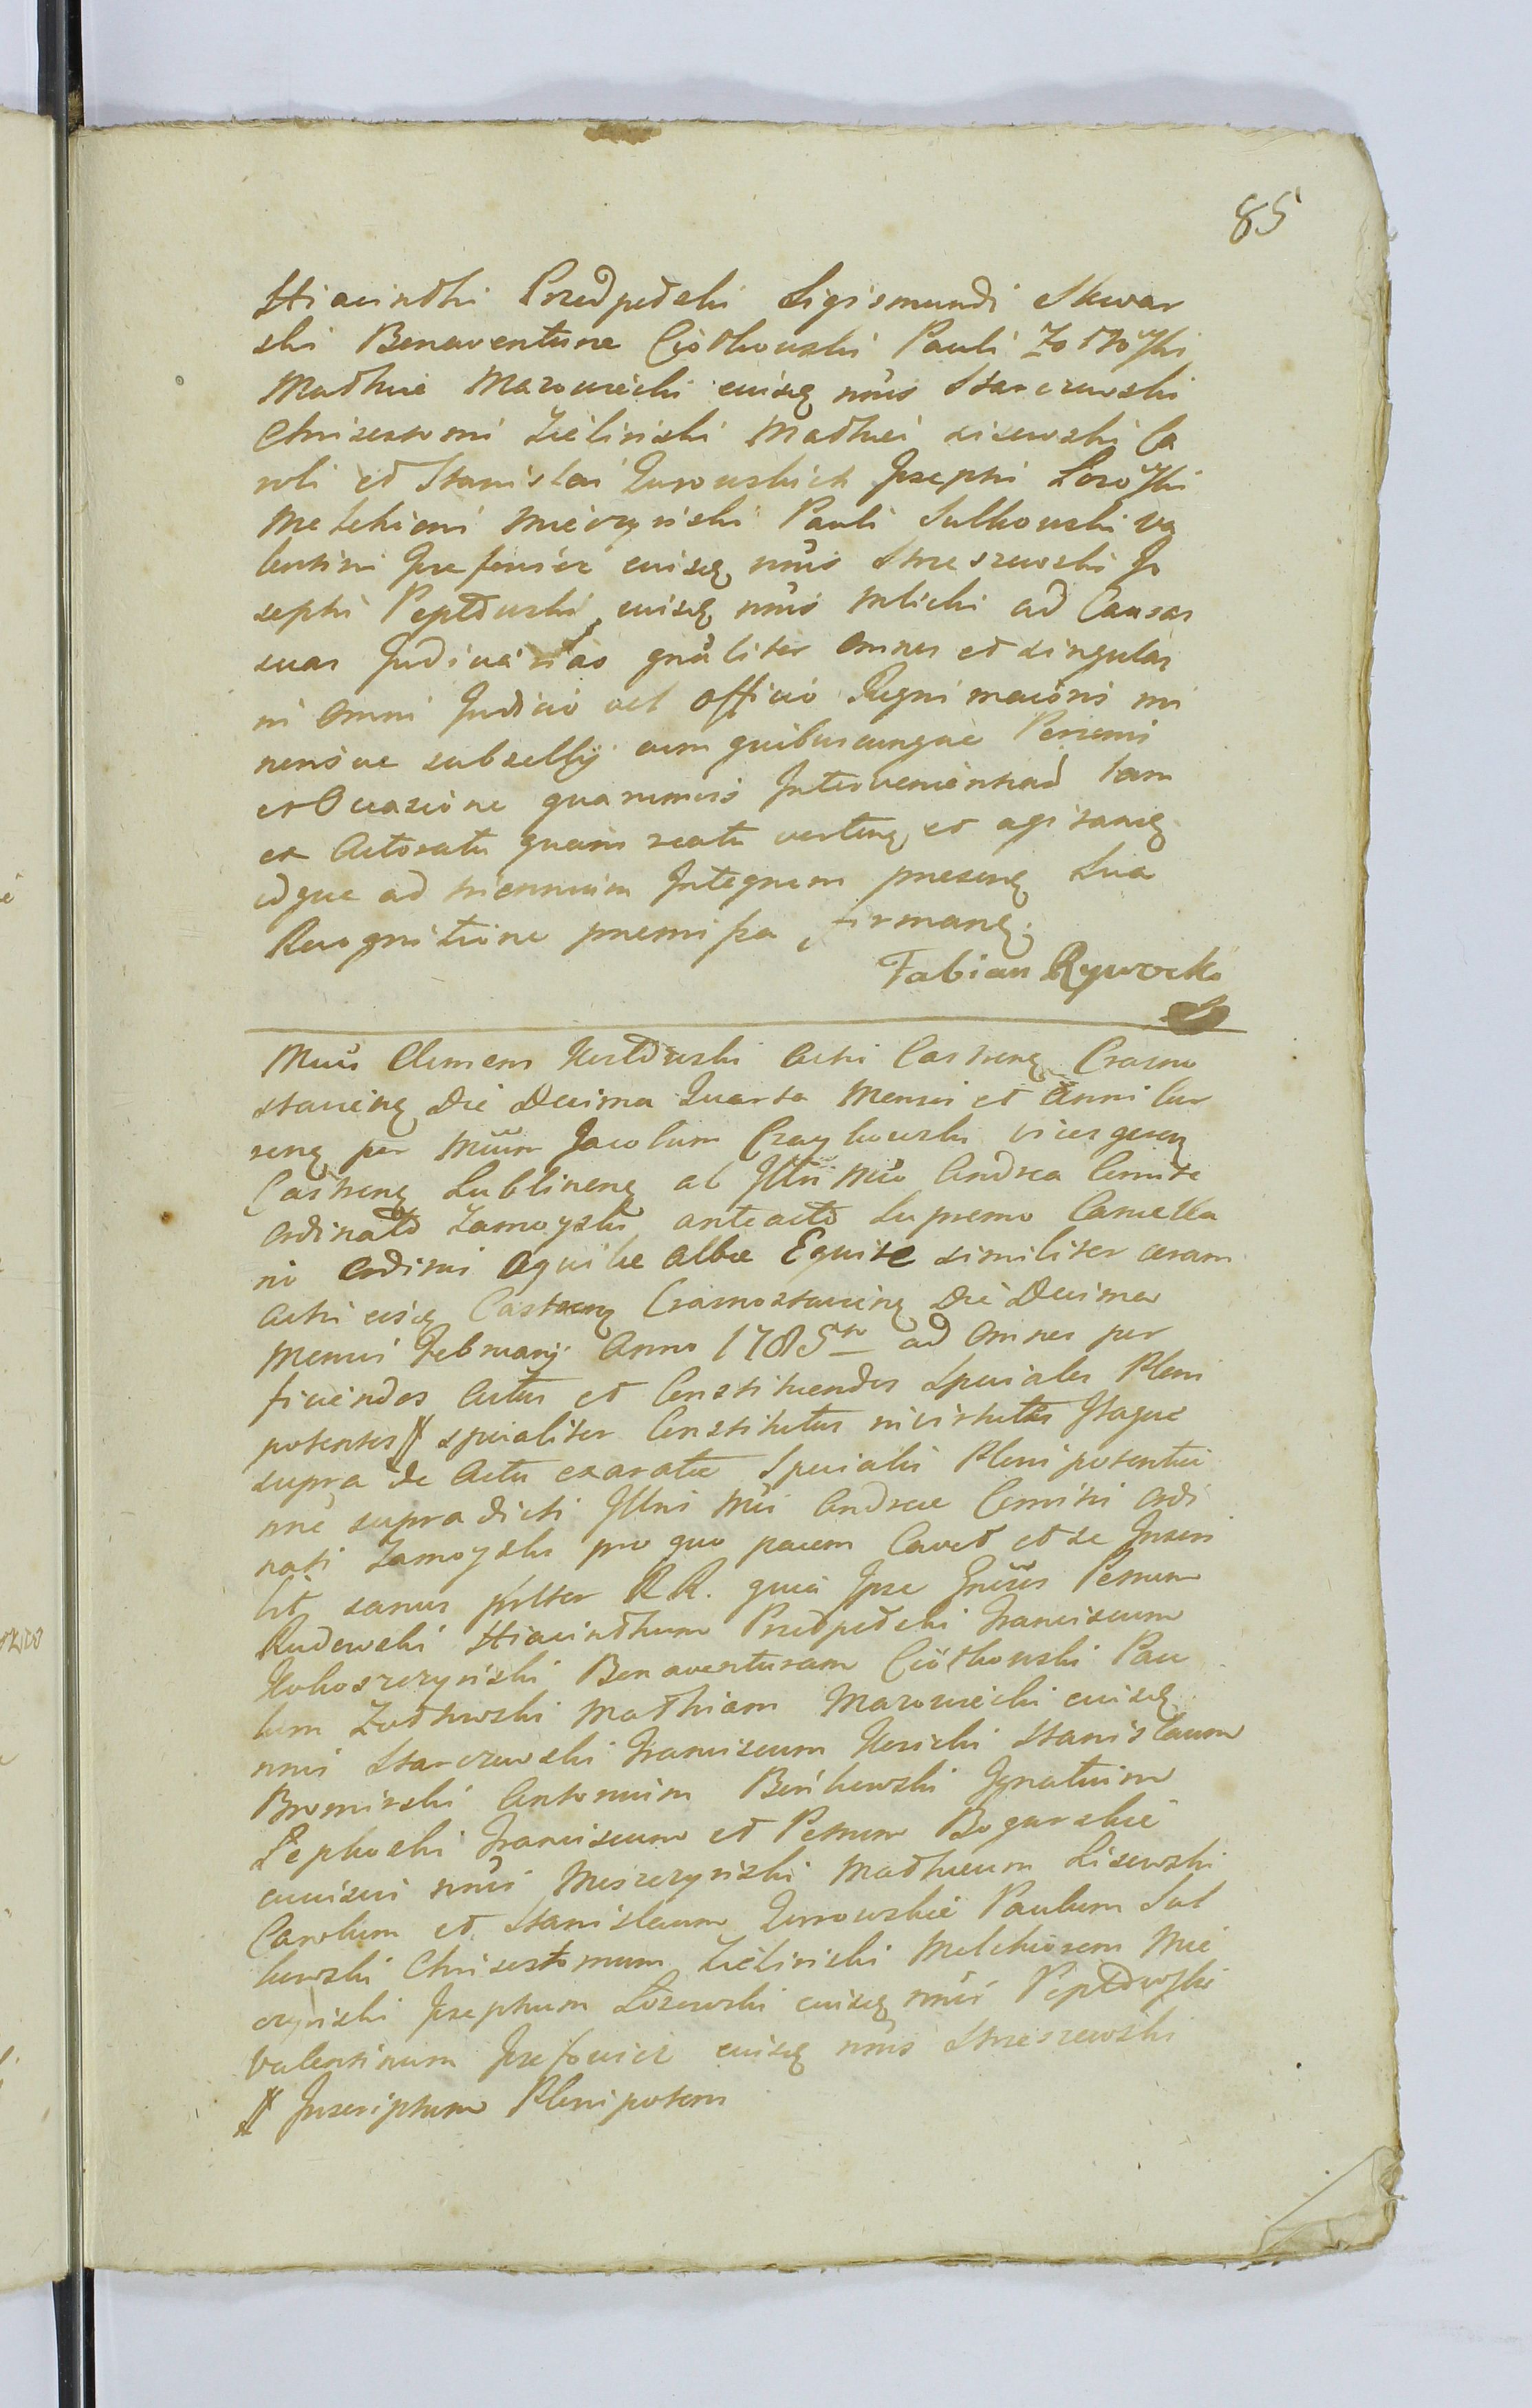 85
Hiacinthi Przedpełski Sigismundi Skwar
ski Benaventurae Ciotkowski Pauli
Mathiae Mazowiecki cuiusq nnis Starczewski
Chrisostomi Zielinski Mathei Lisewski Ca
roli et Stanislai Zurowskich Josephi
Melchiori Mieczynski Pauli Sulkowski Va
lentini Jozefowicz cuiusq nnis Strzeszewski Jo
sephi Pepłowski cuiusq nnis Mlicki ad Causas
suas Judiciarias gnaliter omnes et singulas
in omni Judicio vel officio Regni maioris mi
norisve subsellij cum quibuscunque Personis
et Occasione quarumvis Intervenientias tam
ex Actoratu quam reatu verteng et agitang
idque ad triennium Integrum preseng Sua
Recognitione premissa firmang.
Fabian
Mcus Clemens Kozłowski Acti Castreng Crasno
stavieng Die Decima Quarta Mensis et Anni Cur
reng per Mcum Jacobum Czaykowski vicesgereng
Castreng Lublineng ab Illri Mco Andrea Comite
Ordinato Zamoyski anteacto Supremo Cancella
rio Ordinis Aquilae Albae Equite similiter coram
Actis eisq Castreng Crasnostavieng Die Decima
Mensis Februarij Anno 1785to ad omnes per
ficiendos Actus et Constituendos Speciales Pleni
potentes # specialiter Constitutus in virtute Itaque
supra de Actu exaratae Specialis Plenipotentiae
nne supradicti Illris Mci Andreae Comitis Ordi
nati Zamoyski pro quo pacem Cavet et se Inscri
bit sanus plter RR. quia Ipse Petrum
Rudowski Hiacinthum Przedpełski Franciscum
Kokoszczynski Benaventuram Ciotkowski Pau
lum Mathiam Mazowiecki cuiusq
nnis Starczewski Franciscum Stanislaum
Bromirski Antonium Bienkowski Ignatium
Franciscum et Petrum
cuiusvis nnis Mathaeum Lisewski
Carolum et Stanislaum Zurowskie Paulum Sul
kowski Chrisostomum Zielinski Melchiorem Mie
czynski Josephum cuiusq nnis Pepłowski
Valentinum Jozefowicz cuiusq nnis Strzeszewski
# Inscriptum Plenipotem